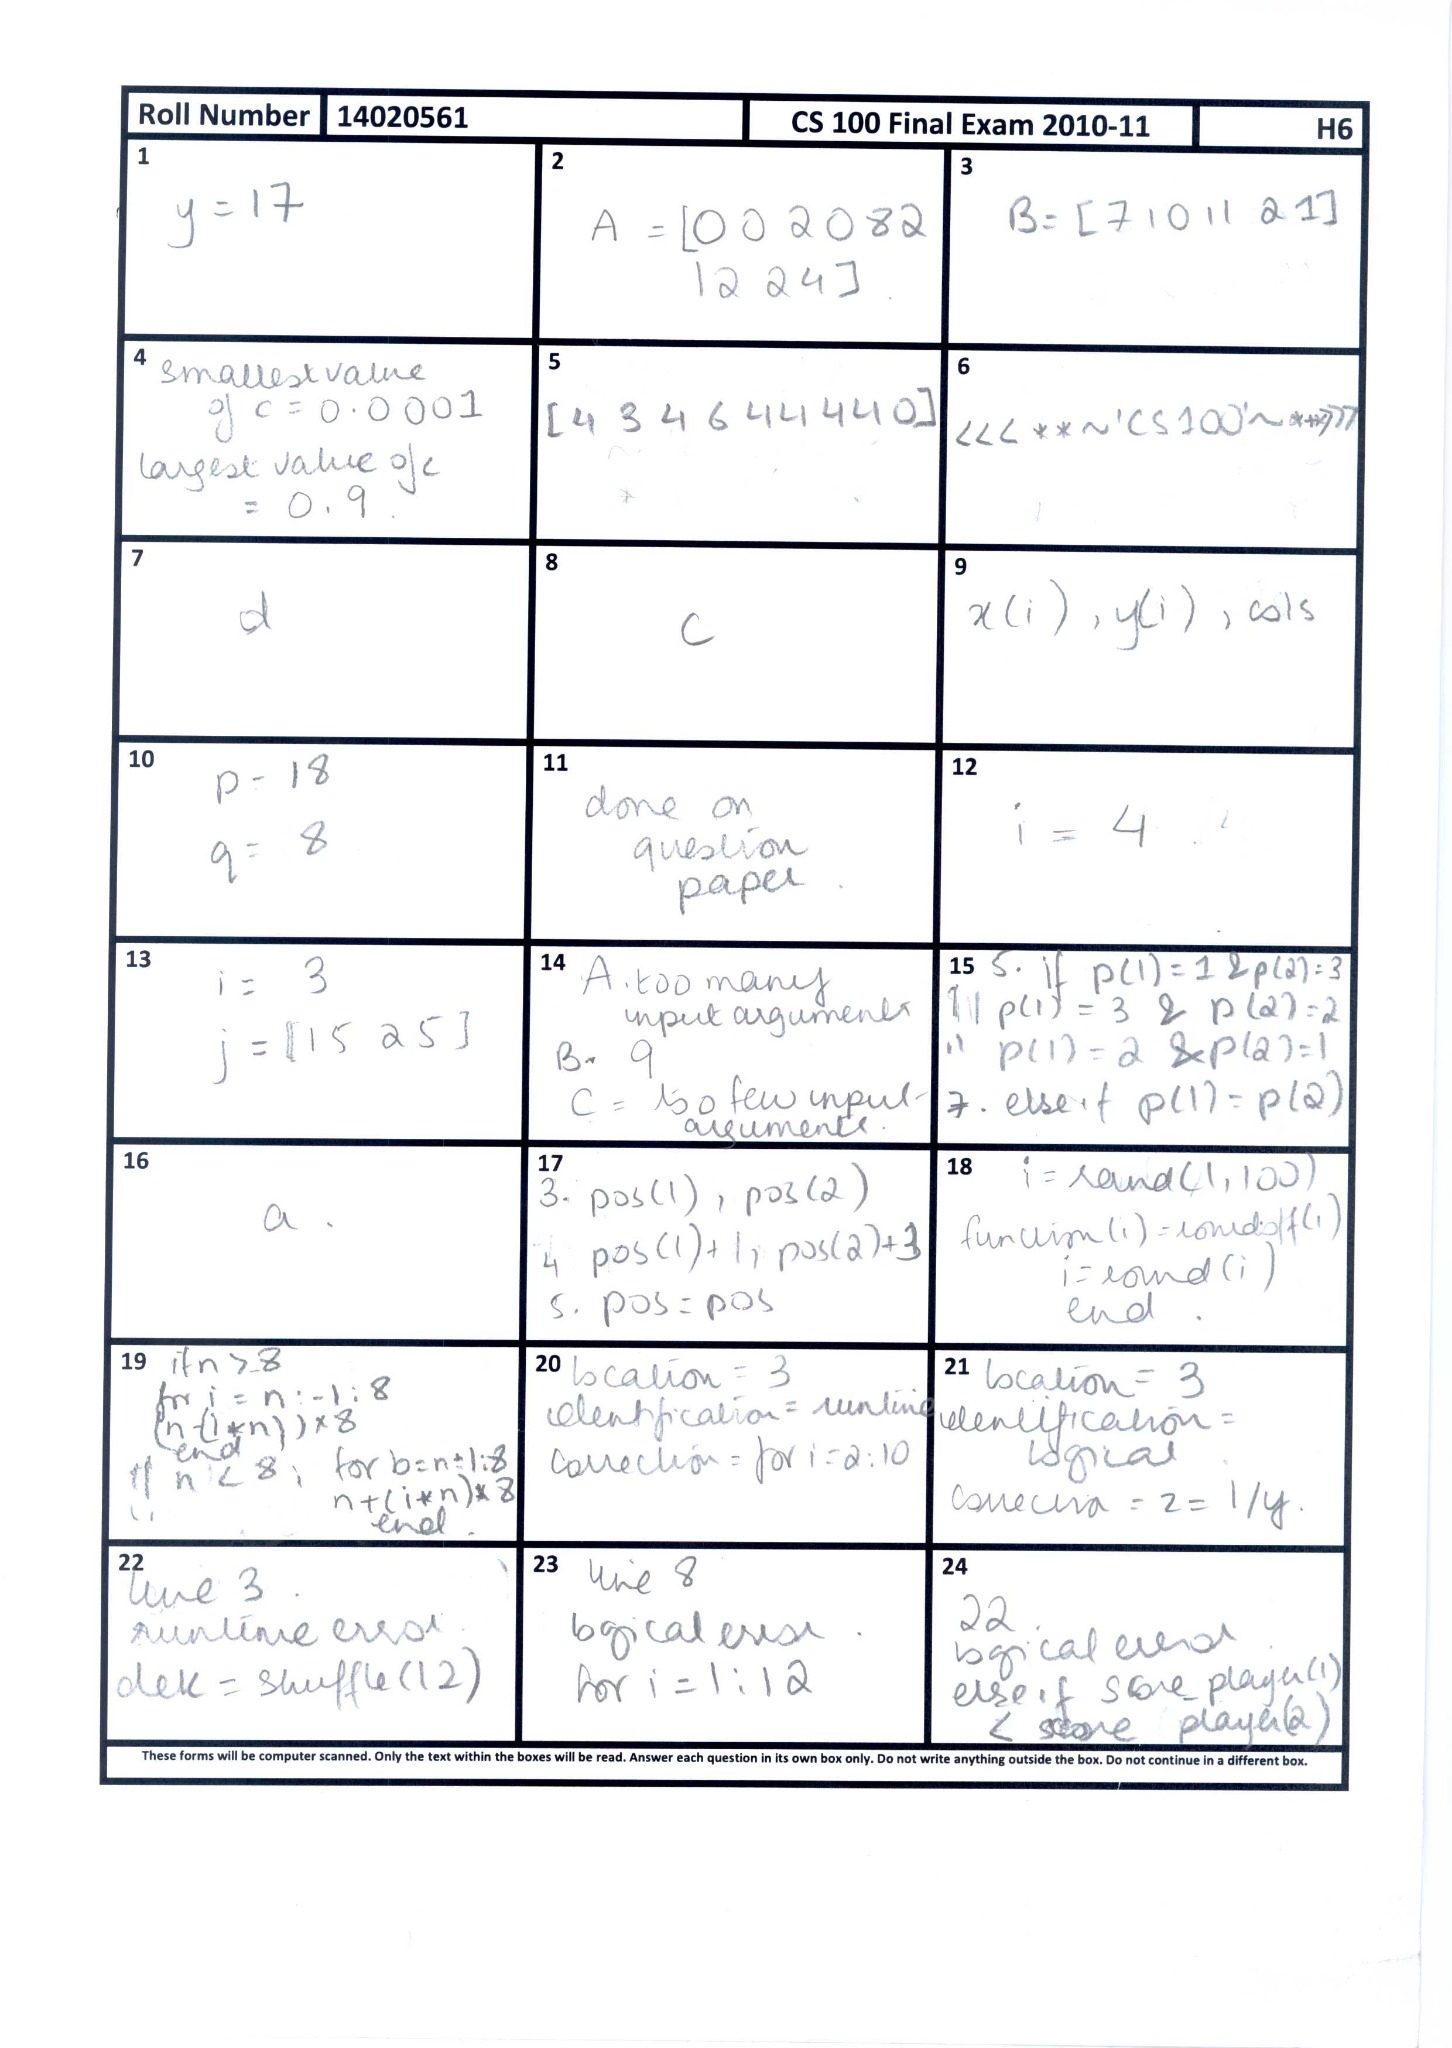 Roll Number 14020561 CS 100 Final Exam 2010-11 H6
1
y = 17
2
A = [0 0 2 0 8 2
12 2 4]
3
B = [7 10 11 2 1]
4 smallest value
of c = 0.0001
largest value of c
= 0.9
5
[4 3 4 6 4 4 4 4 0]
6
<<<**~'CS100'~**>>>
7
d
8
c
9
x(i), y(i), cols
10
p = 18
q = 8
11
done on
question
paper.
12
i = 4
13
i = 3
j = [15 25]
14 A. too many
input arguments
B. 9
C = too few input
arguments.
15 5. if p(1) = 1 & p(2) = 3
p(1) = 3 & p(2) = 2
" p(1) = 2 & p(2) = 1
7. elseif p(1) = p(2)
16
a.
17
3. pos(1), pos(2)
4 pos(1)+1, pos(2)+3
5. pos = pos
18 i = rand(1,100)
function(i) = roundoff(i)
i = round(i)
end.
19 if n > 8
for i = n:-1:8
(n-(i*n))*8
end
if n < 8; for b=n+1:8
n+(i*n)*8
end.
20 location = 3
identification = runtime
correction = for i = 2:10
21 location = 3
identification =
logical
correction = z = 1/y.
22
line 3.
runtime error.
dek = shuffle(12)
23 line 8
logical error.
for i = 1:12
24
22.
logical error.
elseif score_player(1)
< score player(2)
These forms will be computer scanned. Only the text within the boxes will be read. Answer each question in its own box only. Do not write anything outside the box. Do not continue in a different box.